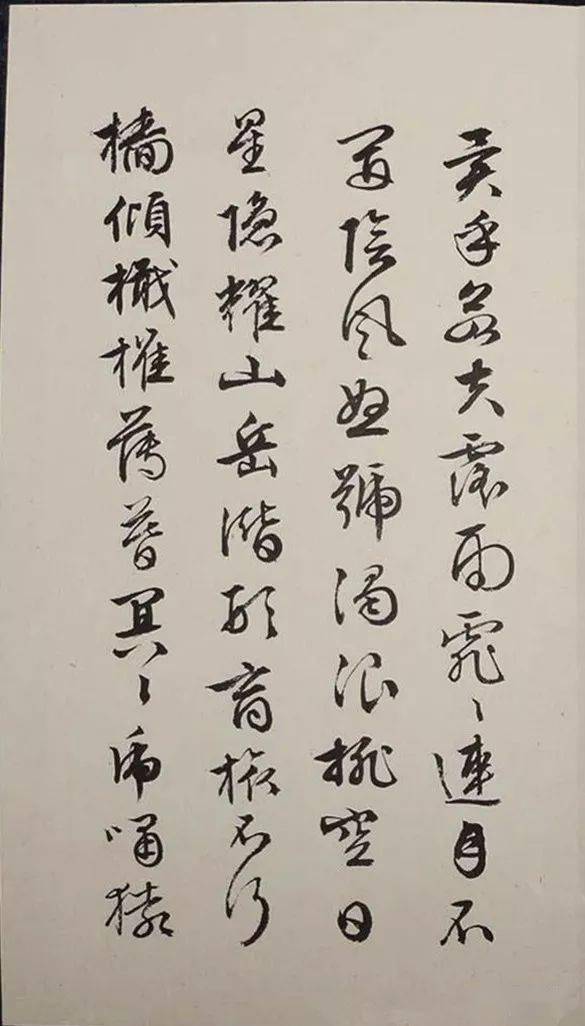 異乎若夫霪雨霏〻連月不
開陰風怒號濁浪排空日
星隱耀山岳潛形商旅不行
檣傾檝摧薄暮冥〻虎嘯猿